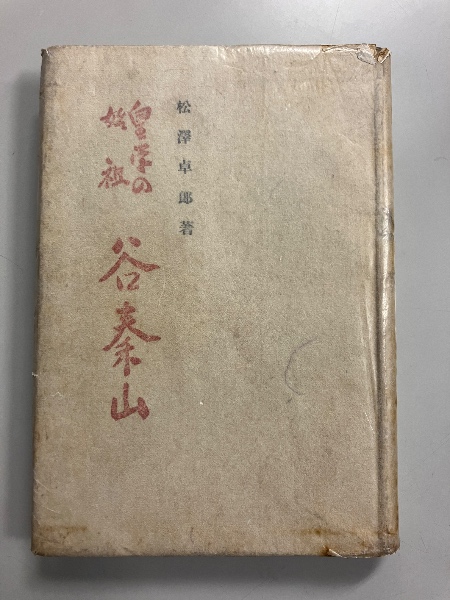 松澤卓郎著
皇学の
始祖
谷秦山